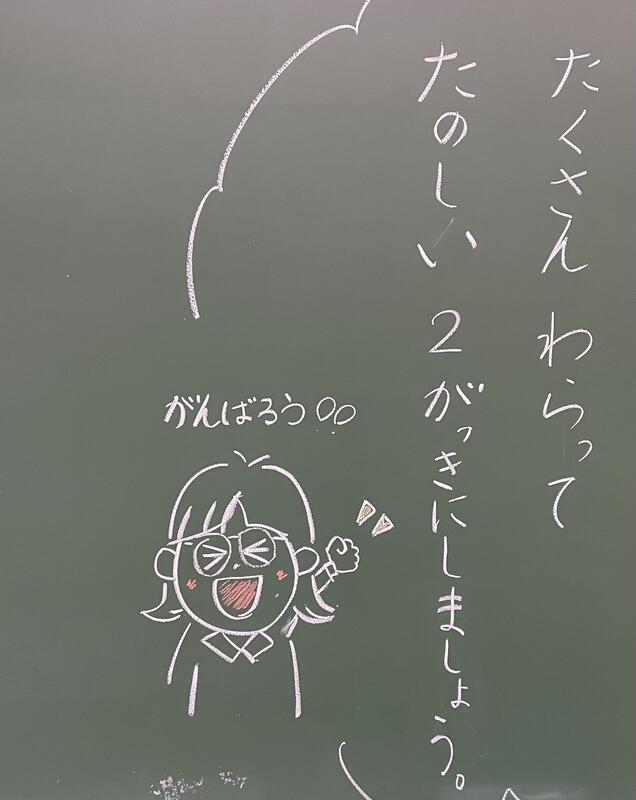 たくさん わらって
たのしい 2がっきにしましょう。
がんばろう!!